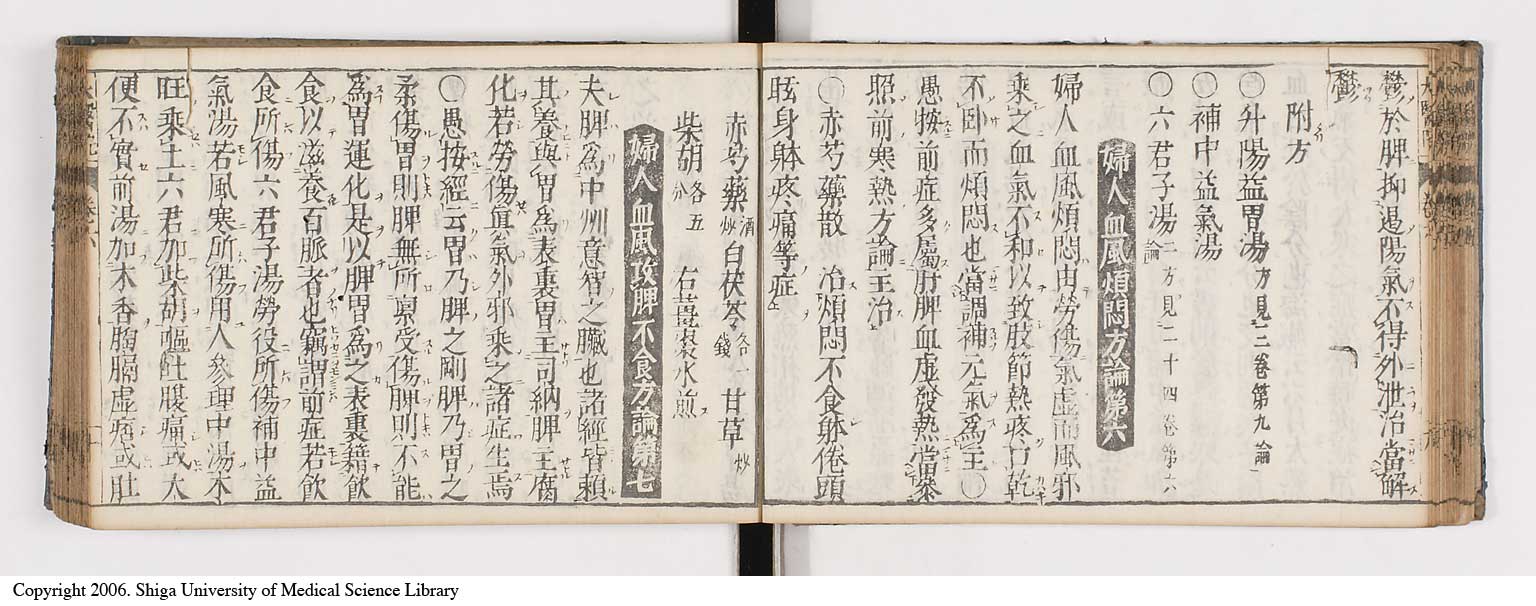 鬱於脾抑遏陽氣不得外泄治當解
鬱
附方
○升陽益胃湯 方見二卷第九論
○補中益氣湯
○六君子湯 二方見二十四卷第六論
婦人血風煩悶方論第六
婦人血風煩悶由勞傷氣虛而風邪
乘之血氣不和以致肢節熱疼口乾
不卧而煩悶也當調補元氣爲主○
愚按前症多屬肝脾血虛發熱當叅
照前寒熱方論主治
○赤芍藥散 治煩悶不食躰倦頭
眩身躰疼痛等症
赤芍藥 酒炒 白茯苓 各一錢 甘草 炒
柴胡 各五分 右薑棗水煎
婦人血風攻脾不食方論第七
夫脾爲中州意智之臟也諸經皆賴
其養與胃爲表裏胃主司納脾主腐
化若勞傷眞氣外邪乘之諸症生焉
○愚按經云胃乃脾之剛脾乃胃之
柔傷胃則脾無所禀受傷脾則不能
爲胃運化是以脾胃爲之表裏籍飲
食以滋養百脈者也竊謂前症若飲
食所傷六君子湯勞役所傷補中益
氣湯若風寒所傷用人參理中湯木
旺乘土六君加柴胡嘔吐腹痛或大
便不實前湯加木香胸膈虛痞或肚
Copyright 2006. Shiga University of Medical Science Library